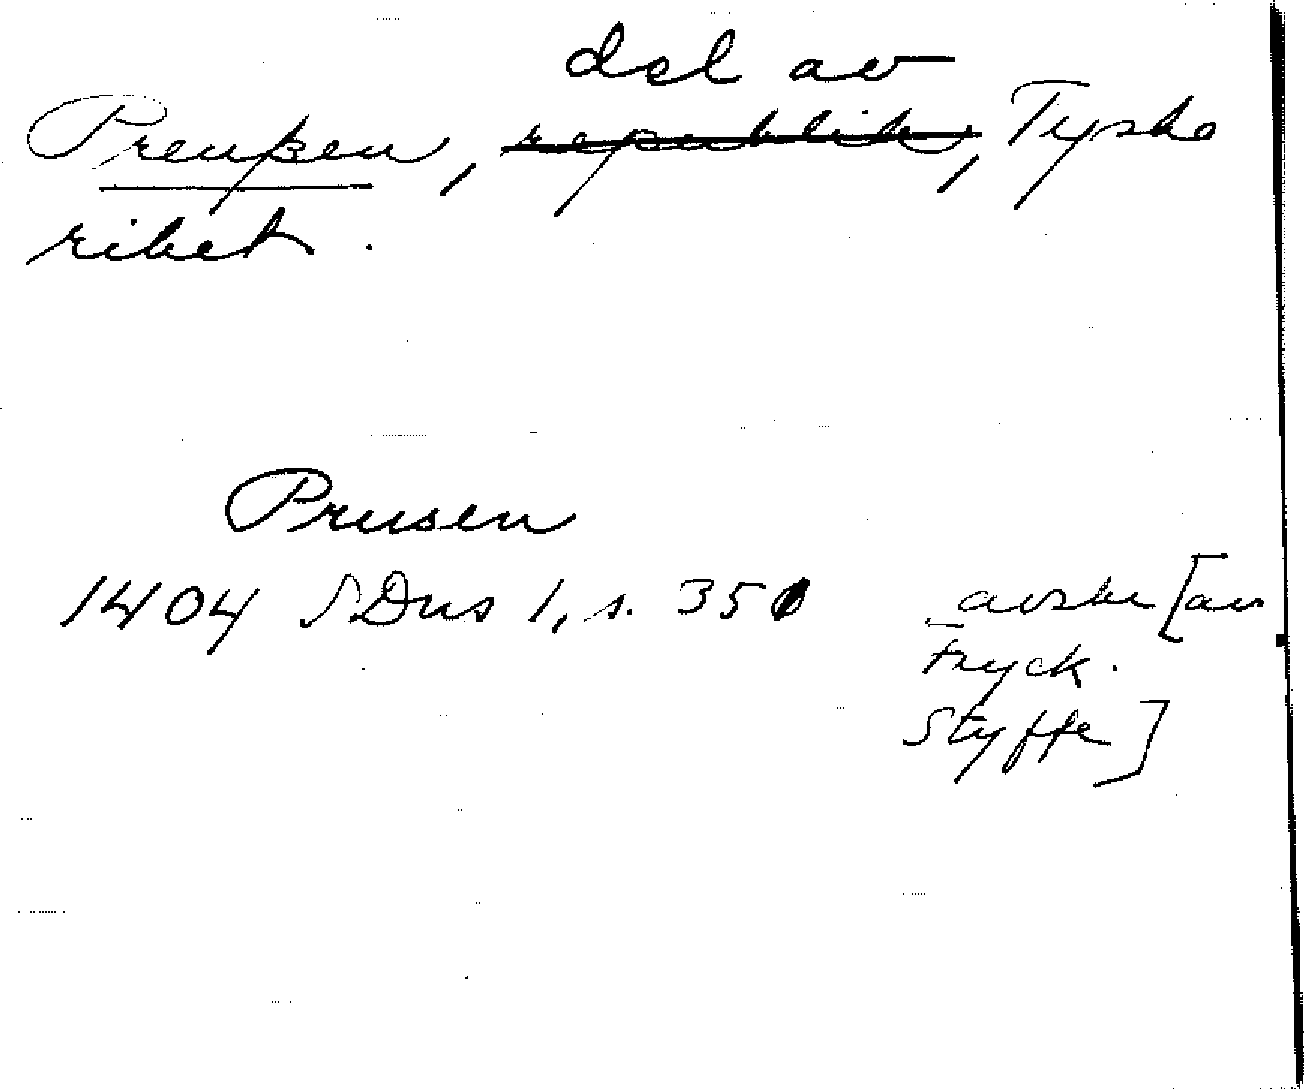 del av
Preußen, republik, Tyska
riket.
Prusen
1404 SDns 1, s. 350
avskr [av
tryck.
Styffe]